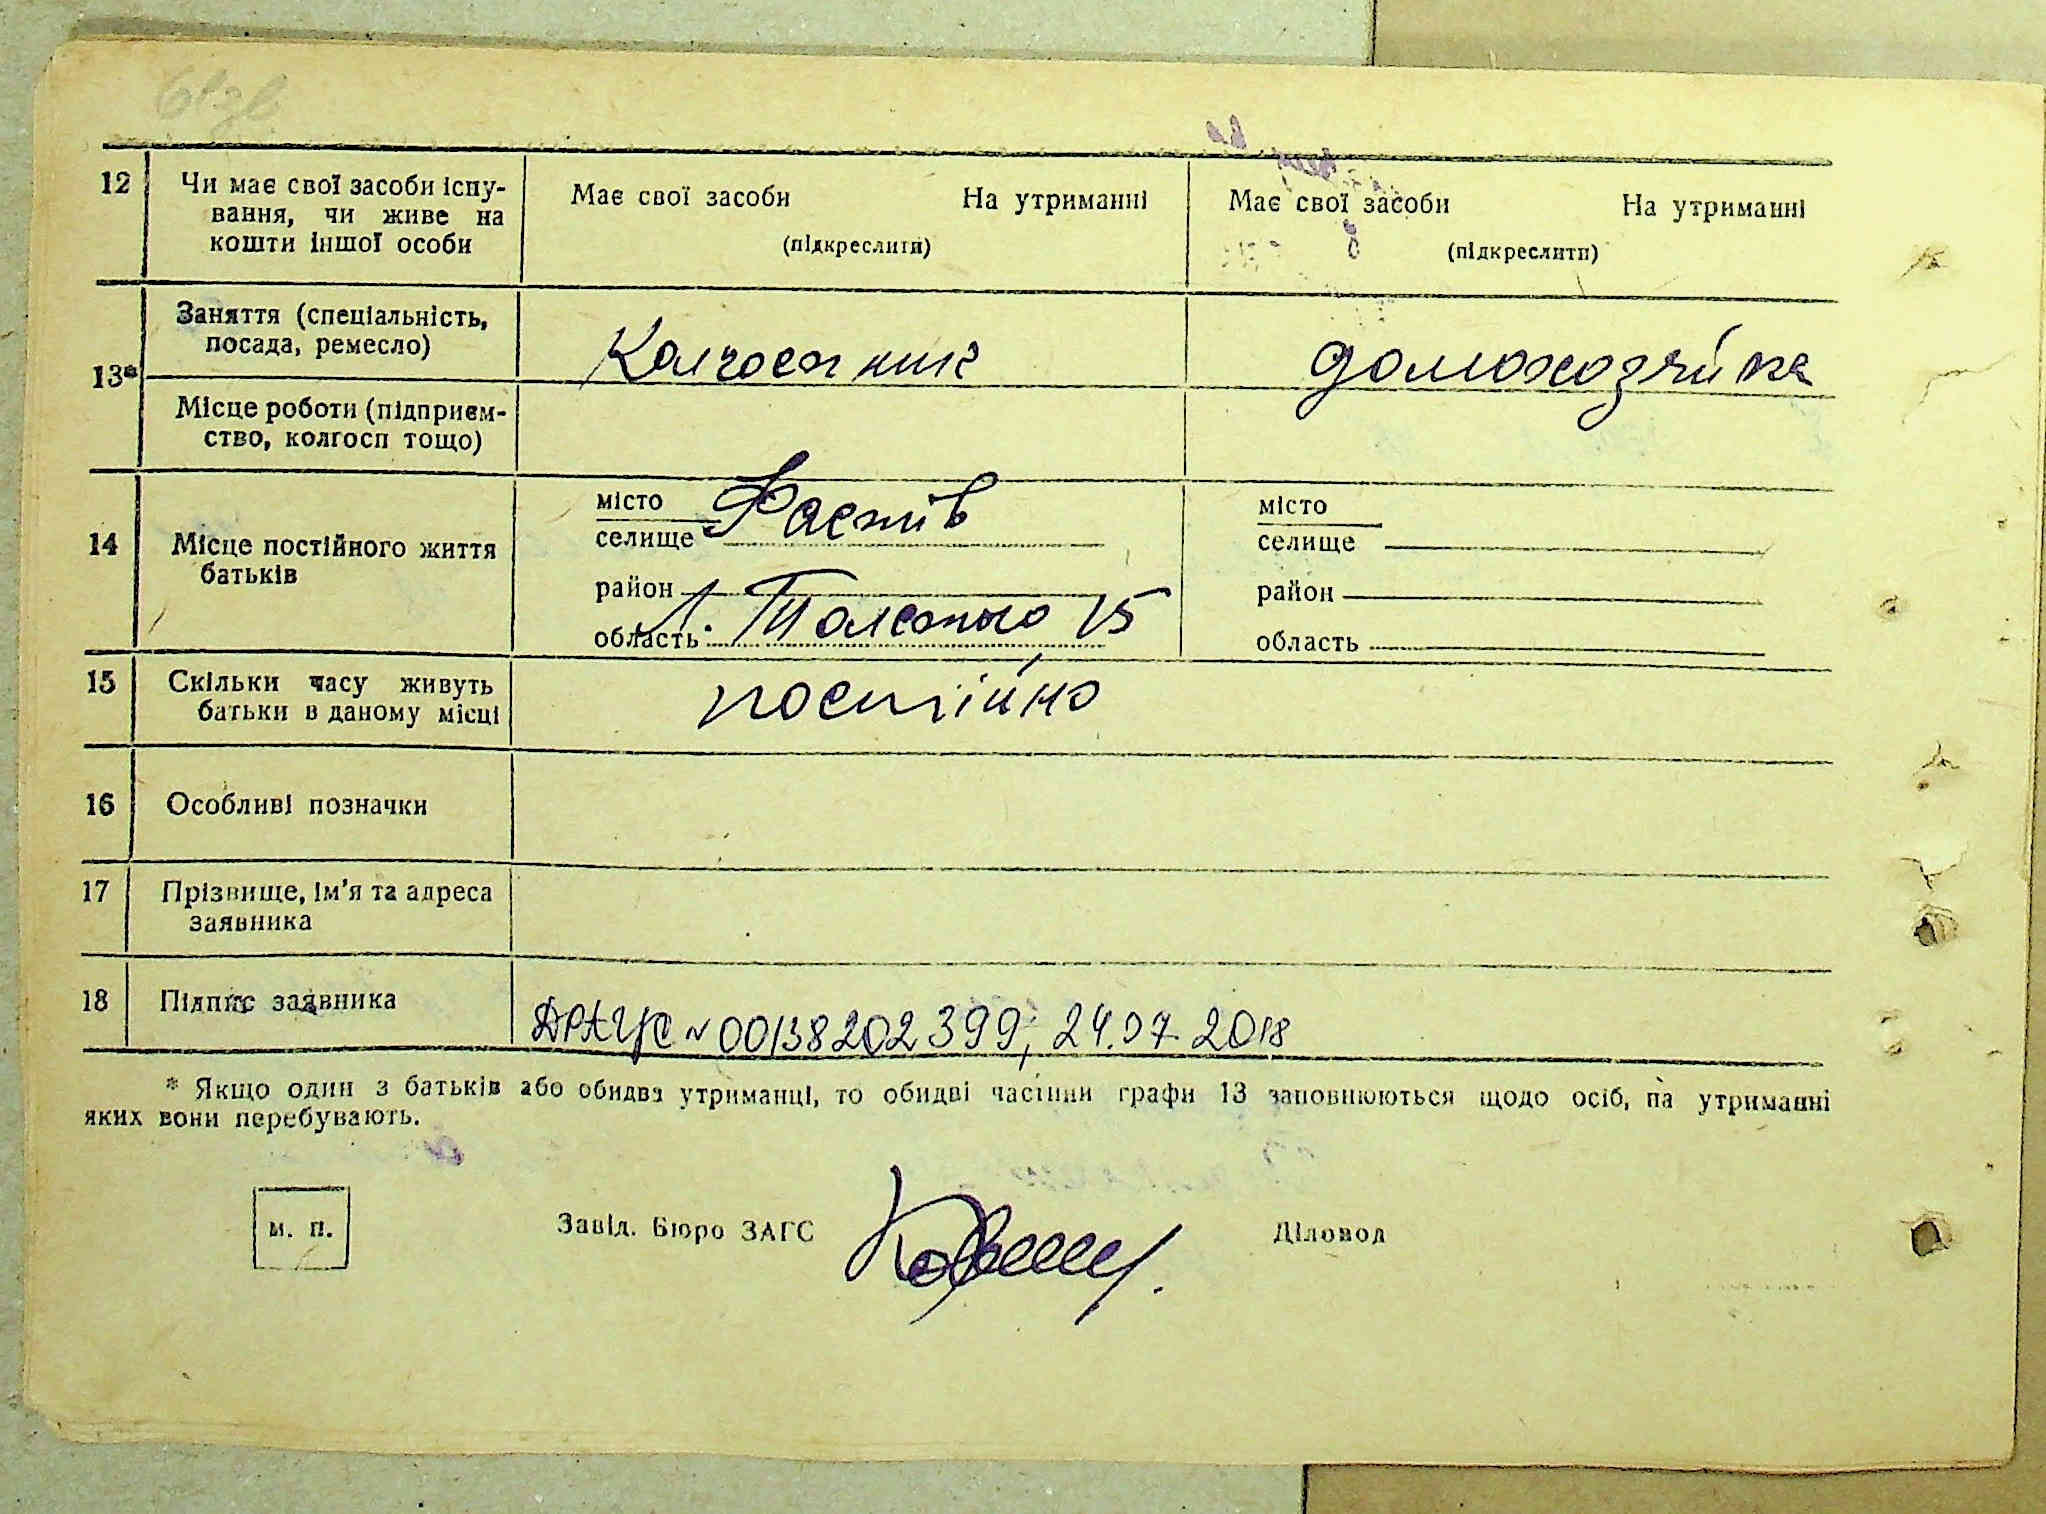 61зв
12 Чи має свої засоби існу- Має свої засоби На утриманні Має свої засоби На утриманні
вання, чи живе на
кошти іншої особи (підкреслити) (підкреслити)
13* Заняття (спеціальність,
посада, ремесло) Колгоспник домохозяйка
Місце роботи (підприєм-
ство, колгосп тощо)
14 Місце постійного життя
батьків
місто Фастів місто
селище селище
район район
Л. Толстого 15
область область
15 Скільки часу живуть постійно
батьки в даному місці
16 Особливі позначки
17 Прізвище, ім'я та адреса
заявника
18 Підпис заявника ДРАЦС № 00138202399, 24.07.2018
* Якщо один з батьків або обидва утриманці, то обидві частини графи 13 заповнюються щодо осіб, на утриманні
яких вони перебувають.
м. п. Завід. Бюро ЗАГС Діловод